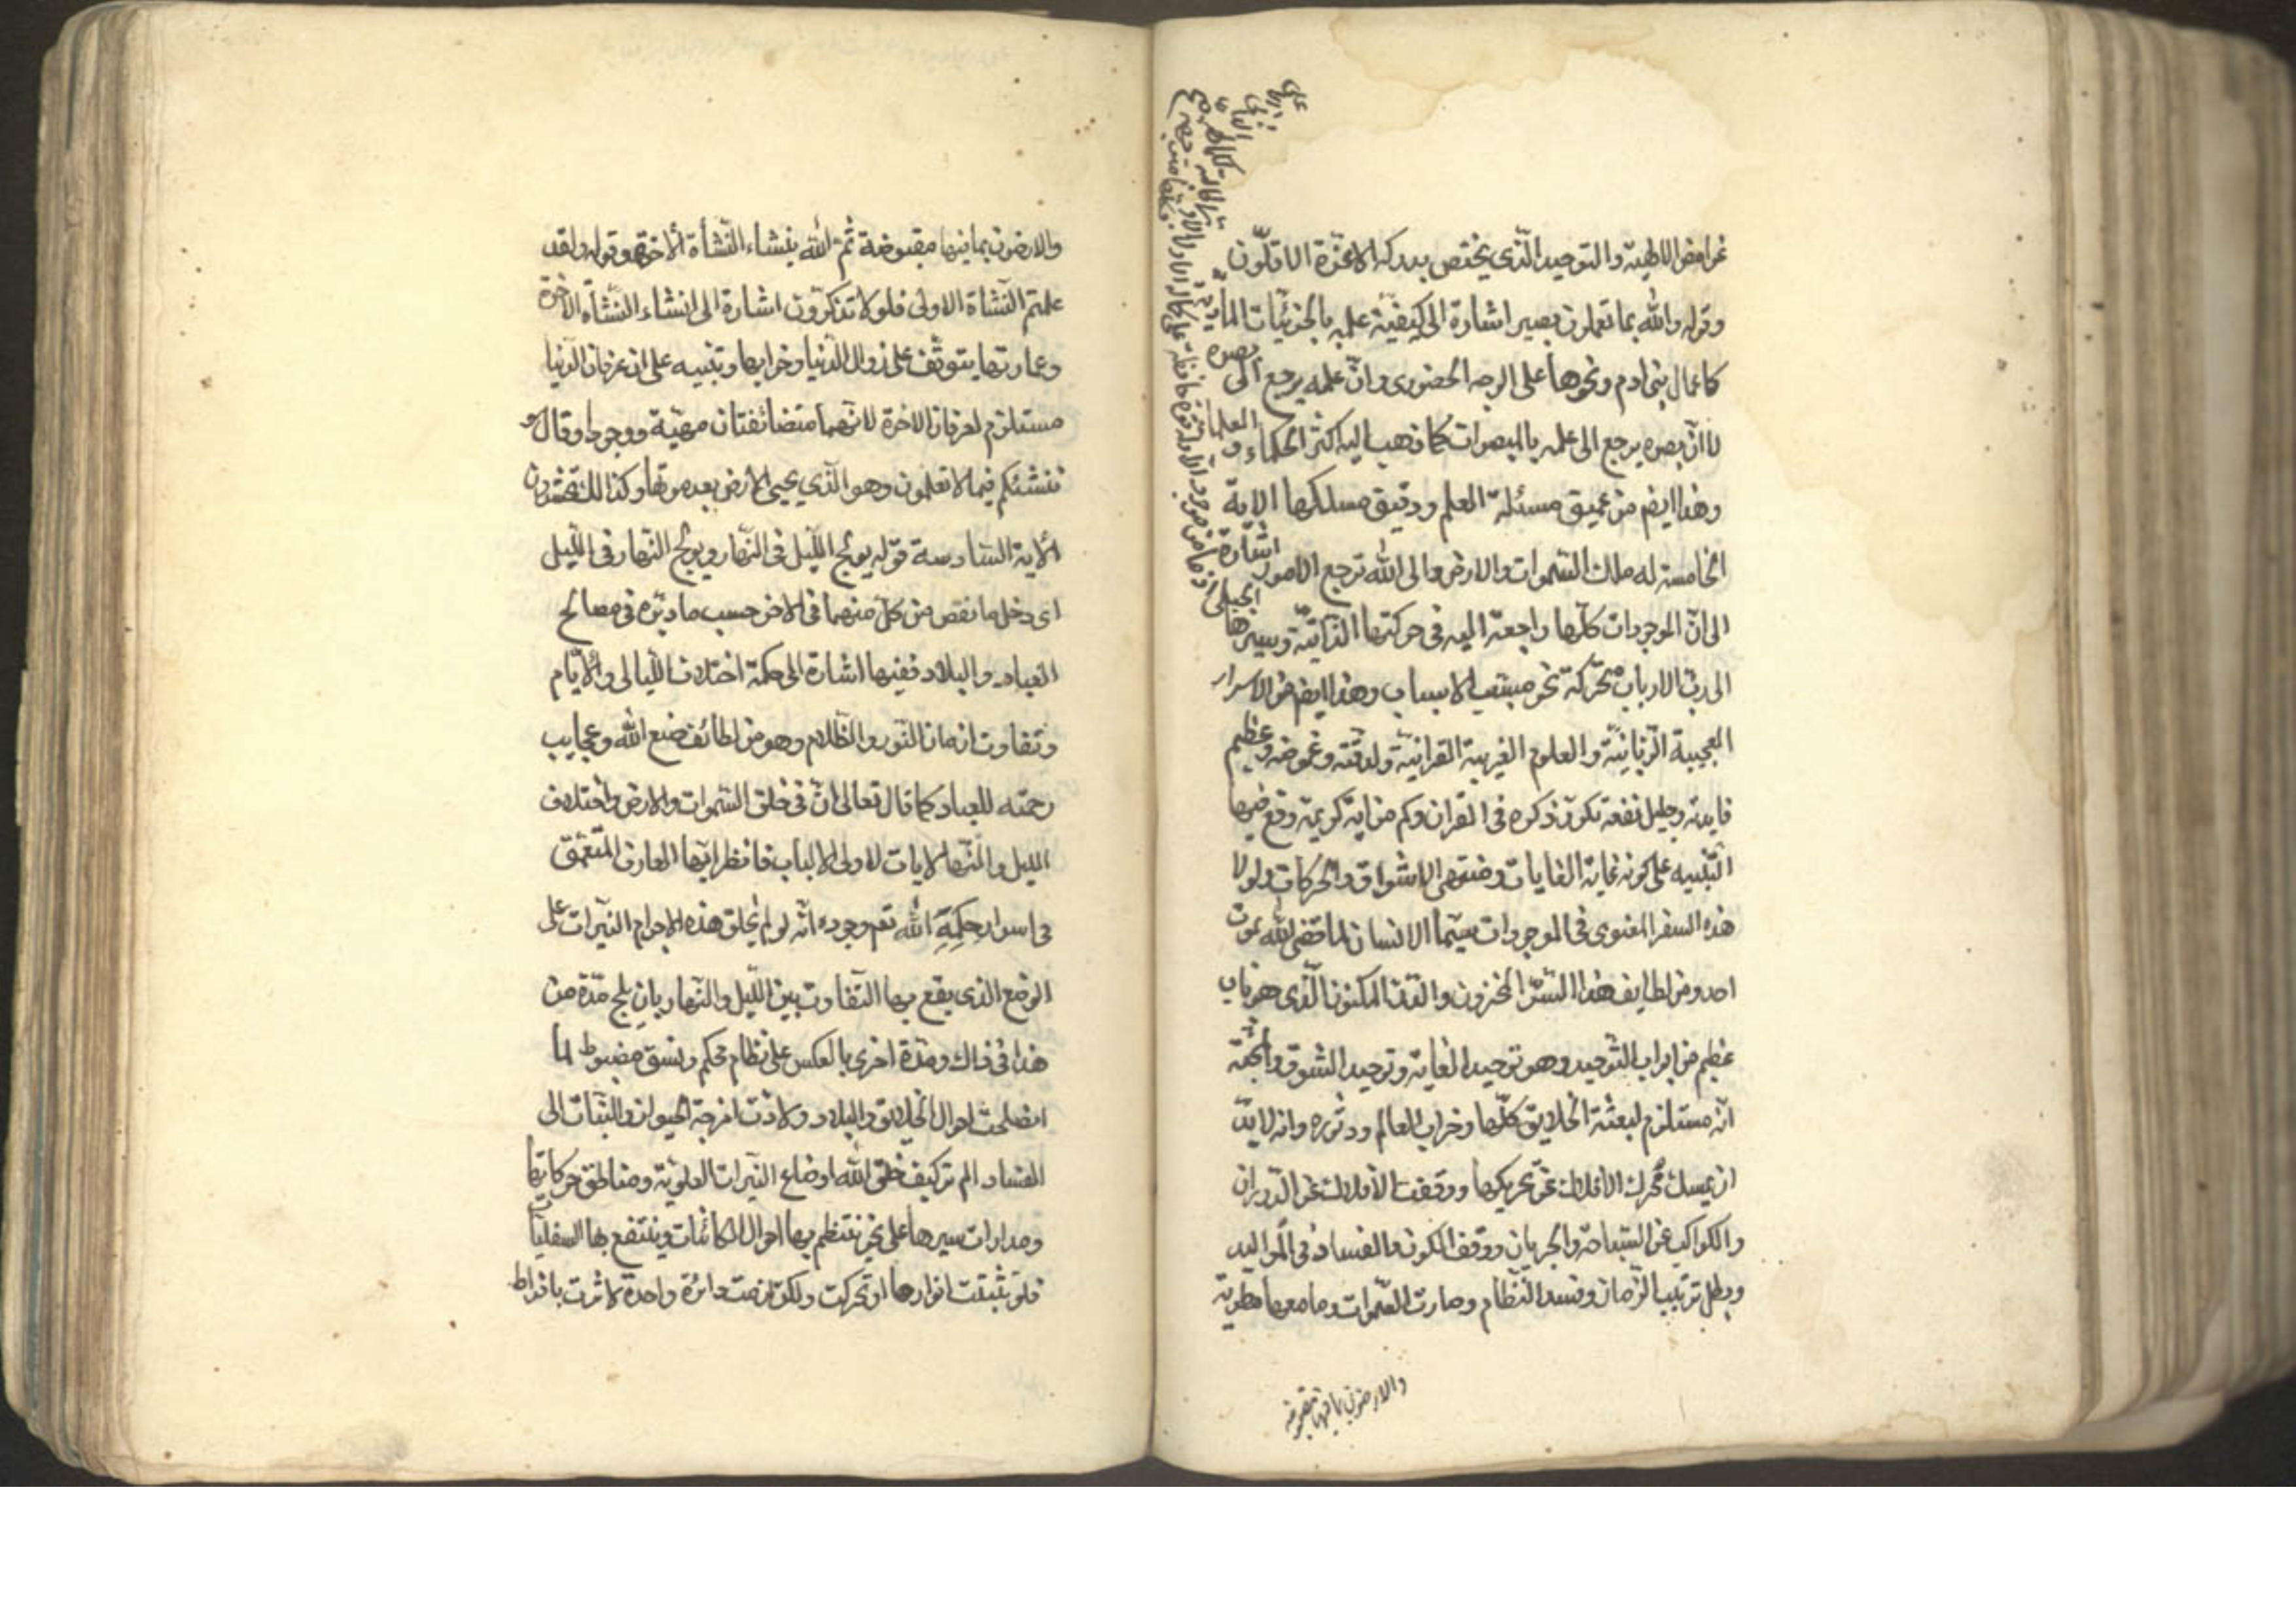 غوامض الالهية والتوحيد الذي يختص بدركه الاعزة الاقلون
وقوله والله بما تعملون بصير اشارة الى كيفية علمه بالجزئيات المادية
كاعمال بني ادم ونحوها على الوجه الحضوري وان علمه يرجع الى بصره
لا ان بصره يرجع الى علمه بالمبصرات كما ذهب اليه اكثر الحكماء و العلماء
وهذا ايضا من عميق مسئلة العلم ودقيق مسلكها الاية
الخامسة له ملك السموات والارض والى الله ترجع الامور اشارة
الى ان الموجودات كلها راجعة اليه في حركتها الذاتية وسيرها الجبلي
الى رب الارباب متحركة نحو مسبب الاسباب وهذا ايضا من الاسرار
العجيبة الربانية والعلوم الغريبة القرانية ولدقته وغموضه وعظيم
فايدته وجليل نفعه تكرر ذكره في القران وكم من اية كريمة وقع فيها
التنبيه على كونه غاية الغايات ومنتهى الاشواق والحركات ولولا
هذه السفر المعنوي في الموجودات سيما الانسان لما قضى الله بموت
احد ومن لطايف هذا السر المخزون والدر المكنون الذي هو باب
عظيم من ابواب التوحيد وهو توحيد الغاية وتوحيد الشوق والمحبة
انه مستلزم لبعثة الخلايق كلها وخراب العالم ودثوره وانه لابد
ان يمسك محرك الافلاك عن تحريكها ووقفت الافلاك عن الدوران
والكواكب عن السباحة والجريان ووقف الكون والفساد في المواليد
وبطل ترتيب الزمان وفسد النظام وصارت السموات وما معها مطوية
والارضون بما فيها مقبوضة
والارضون بما فيها مقبوضة ثم الله ينشاء النشأة الاخرة وقوله ولقد
علمتم النشاة الاولى فلولا تذكرون اشارة الى انشاء النشأة الاخرة
وعمارتها يتوقف على زوال الدنيا وخرابها وتنبيه على ان عرفان الدنيا
مستلزم لعرفان الاخرة لانهما متضائفتان مهية ووجودا وقال و
ننشئكم فيما لا تعلمون وهو الذي يحيى الارض بعد موتها وكذلك تخرجون
الاية السادسة قوله يولج الليل في النهار ويولج النهار في الليل
اى دخل ما نقص من كل منهما في الاخر حسب ما دبره في مصالح
العباد والبلاد ففيها اشارة الى حكمة اختلاف الليالى والايام
وتفاوت ازمان النور والظلام وهو من لطائف صنع الله وعجايب
رحمته للعباد كما قال تعالى ان في خلق السموات والارض واختلاف
الليل والنهار لايات لاولى الالباب فانظر ايها العارف المتعمق
في اسرار حكمة الله تعم وجوده انه لو لم يخلق هذه الاجرام النيرات على
الوضع الذي يقع بها التفاوت بين الليل والنهار بان يلج مدة من
هذا في ذاك ومدة اخرى بالعكس على نظام محكم ونسق مضبوط لما
انصلحت احوال الخلايق والبلاد ولادت امزجة الحيوان والنبات الى
الفساد الم تر كيف خلق الله اوضاع النيرات العلوية ومناطق حركاتها
ومدارات سيرها على نحو ينتظم بها احوال الكائنات وينتفع بها السفليات
فلو ثبتت انوارها او تحركت ولكن لزمت دائرة واحدة لاثرت بافراط